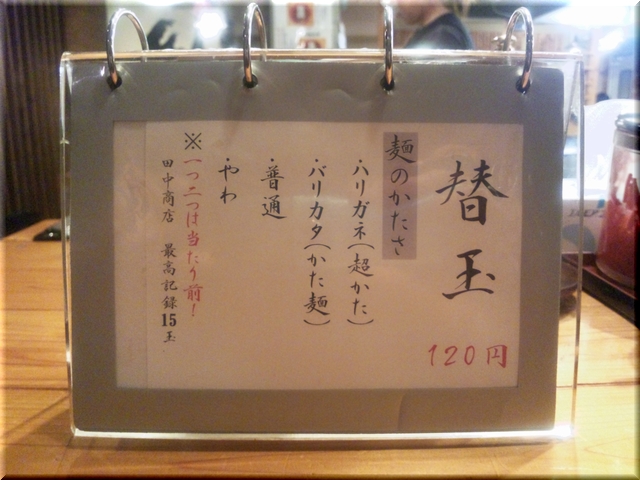 替玉
120円
麺のかたさ
・ハリガネ(超かた)
・バリカタ(かた麺)
・普通
・やわ
※一つ二つは当たり前!
田中商店 最高記録15玉